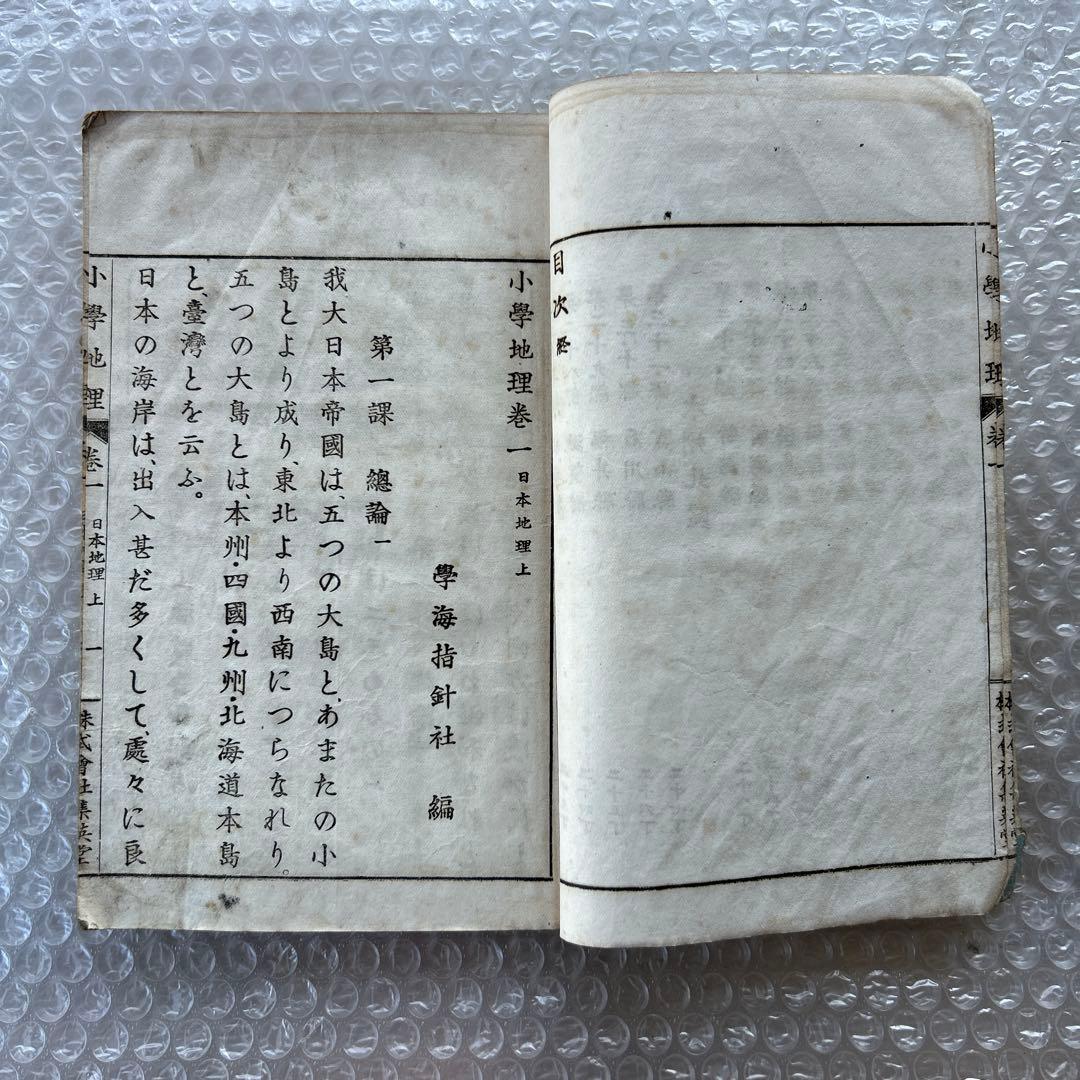 小學地理
卷一
目次終
小學地理卷一 日本地理上
學海指針社 編
第一課 總論一
我大日本帝國は、五つの大島と、あまたの小
島とより成り、東北より西南につらなれり。
五つの大島とは、本州・四國・九州・北海道本島
と、臺灣とを云ふ。
日本の海岸は、出入甚だ多くして、處々に良
小學地理 卷一 日本地理上 一 株式會社集英堂